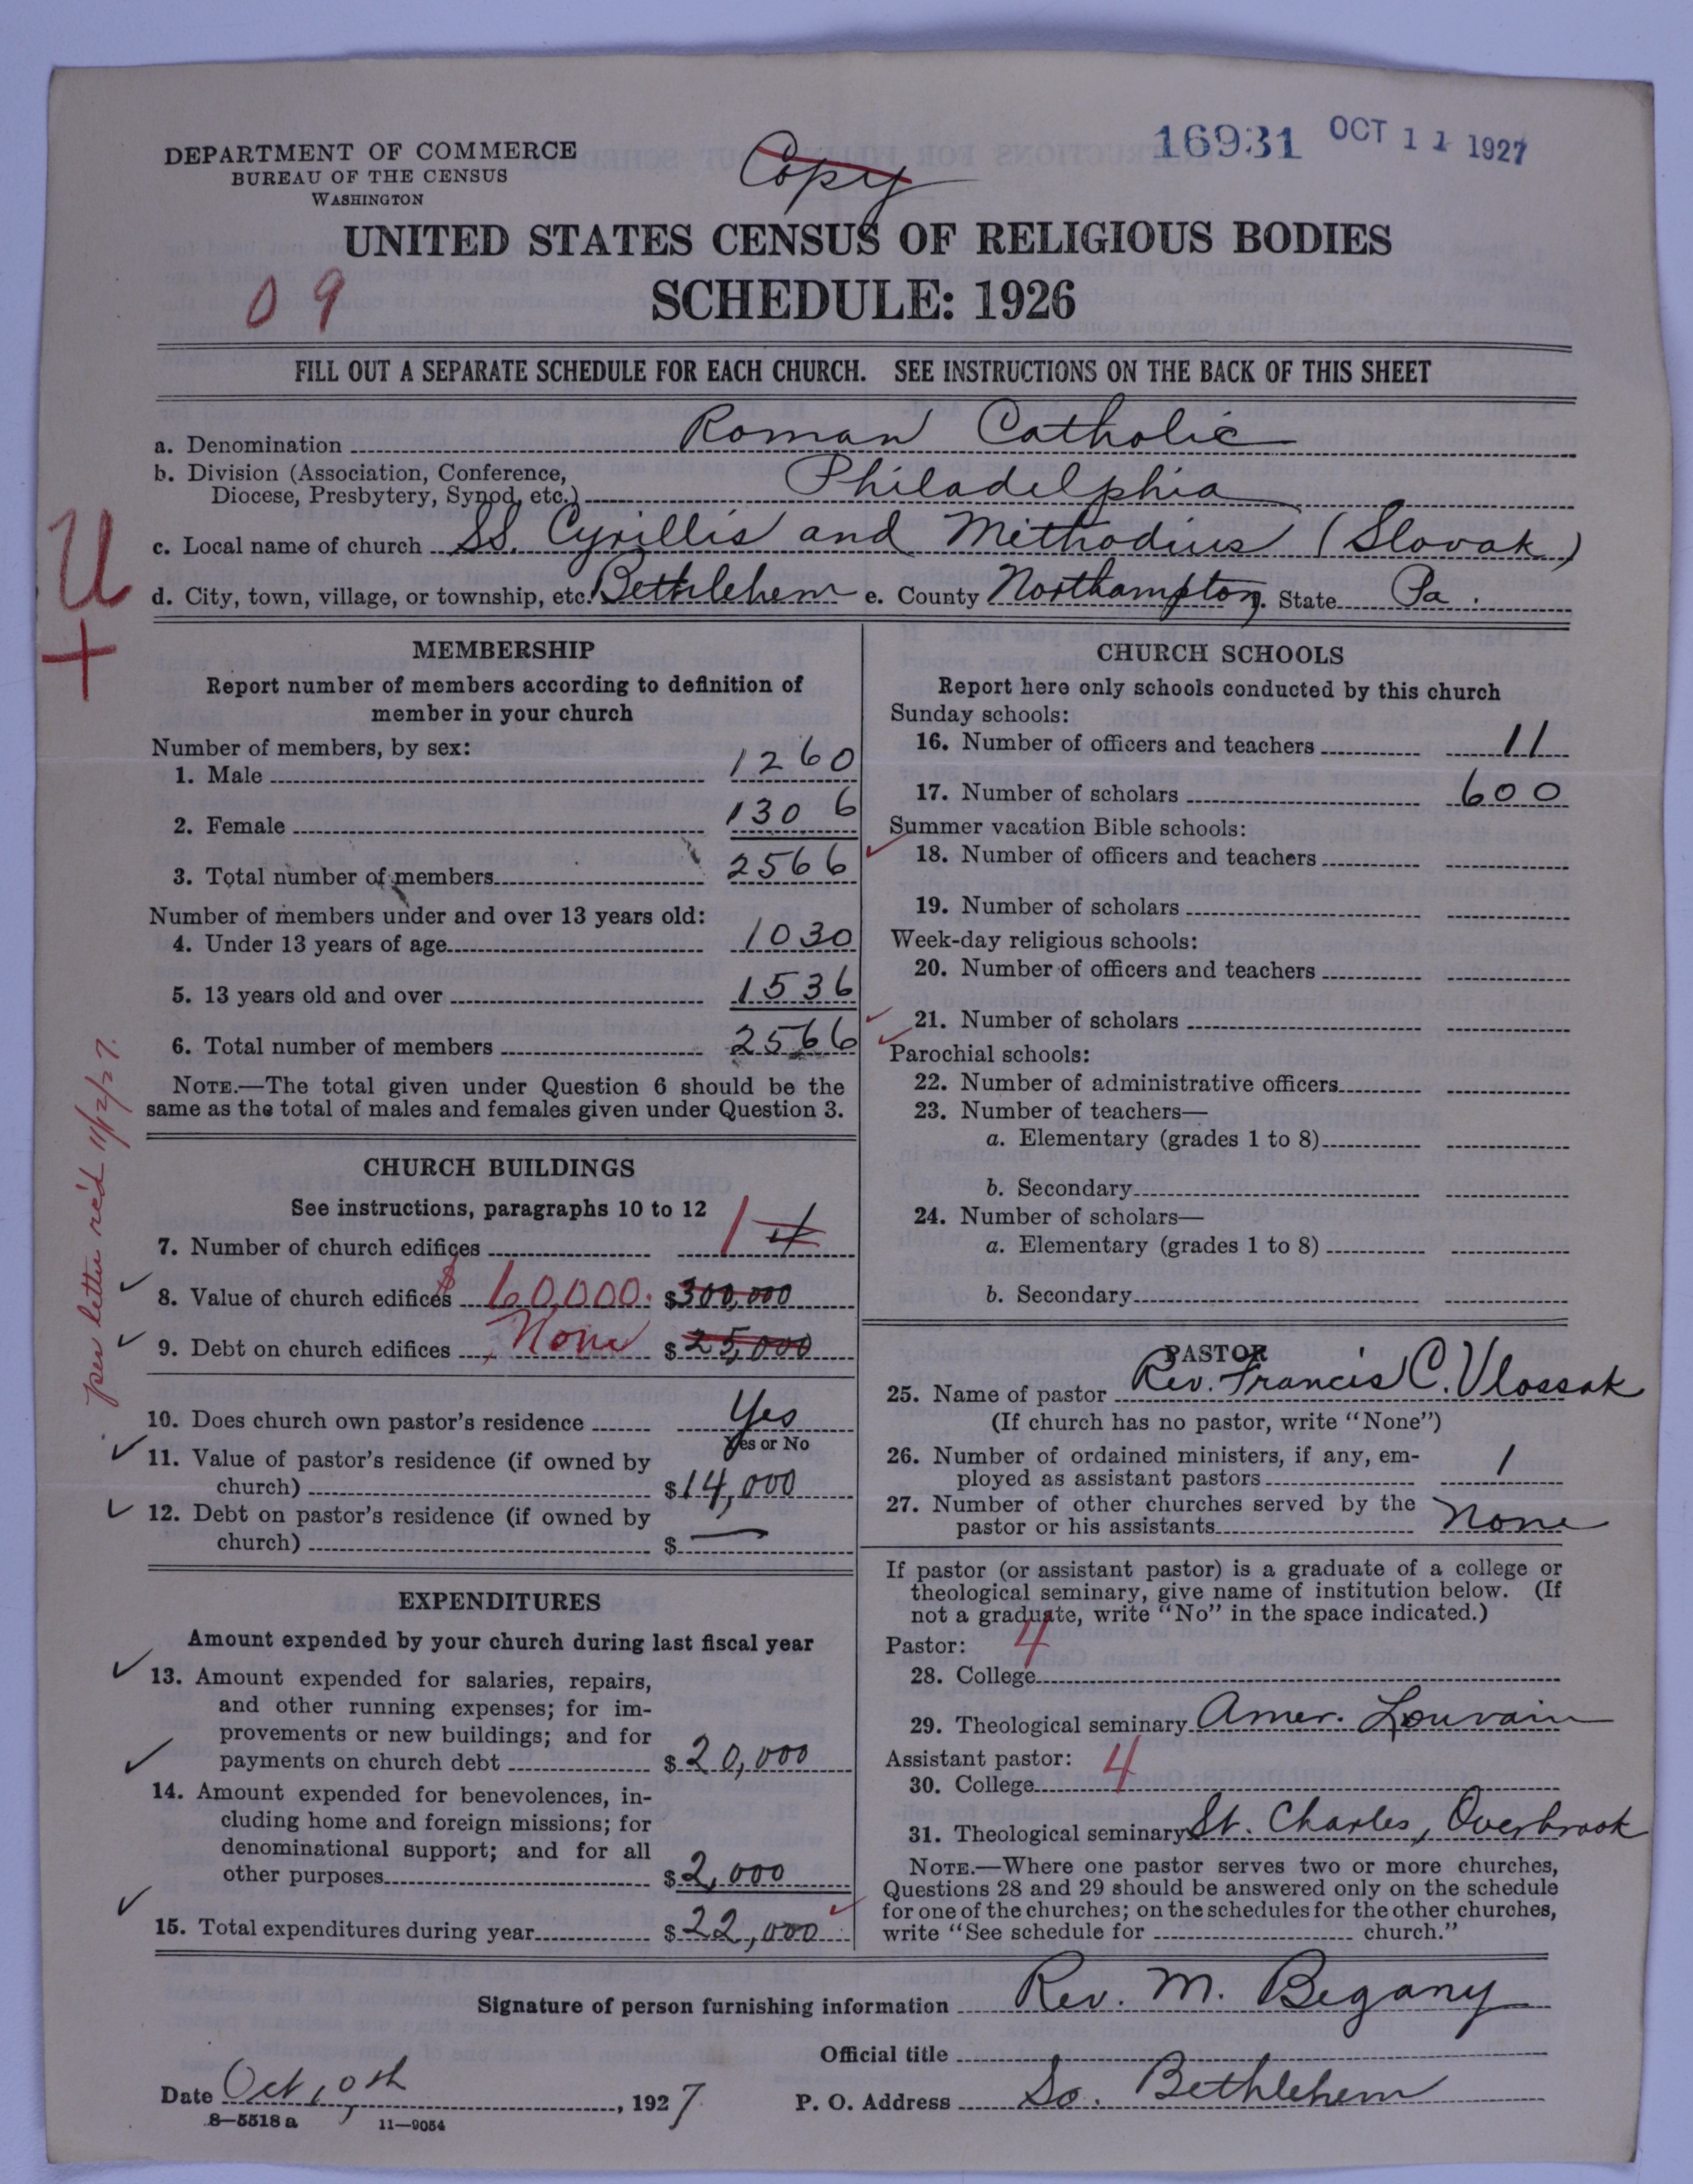 DEPARTMENT OF COMMERCE
BUREAU OF THE CENSUS
WASHINGTON
Copy
16931 OCT 11 1927
UNITED STATES CENSUS OF RELIGIOUS BODIES
SCHEDULE: 1926
09
FILL OUT A SEPARATE SCHEDULE FOR EACH CHURCH. SEE INSTRUCTIONS ON THE BACK OF THIS SHEET
a. Denomination Roman Catholic
b. Division (Association, Conference,
Diocese, Presbytery, Synod, etc.) Philadelphia
c. Local name of church SS. Cyrillis and Methodius (Slovak)
d. City, town, village, or township, etc. Bethlehem e. County Northampton f. State Pa.
U
+
MEMBERSHIP
Report number of members according to definition of
member in your church
Number of members, by sex:
1. Male 1260
2. Female 1306
3. Total number of members 2566
Number of members under and over 13 years old:
4. Under 13 years of age 1030
5. 13 years old and over 1536
6. Total number of members 2566
NOTE.—The total given under Question 6 should be the
same as the total of males and females given under Question 3.
per letter rec'd 11/2/27.
CHURCH BUILDINGS
See instructions, paragraphs 10 to 12
7. Number of church edifices 1 4
8. Value of church edifices $60,000. $300,000
9. Debt on church edifices None $25,000
10. Does church own pastor's residence Yes
Yes or No
11. Value of pastor's residence (if owned by
church) $14,000
12. Debt on pastor's residence (if owned by
church) $ —
EXPENDITURES
Amount expended by your church during last fiscal year
13. Amount expended for salaries, repairs,
and other running expenses; for im-
provements or new buildings; and for
payments on church debt $20,000
14. Amount expended for benevolences, in-
cluding home and foreign missions; for
denominational support; and for all
other purposes $2,000
15. Total expenditures during year $22,000
CHURCH SCHOOLS
Report here only schools conducted by this church
Sunday schools:
16. Number of officers and teachers 11
17. Number of scholars 600
Summer vacation Bible schools:
18. Number of officers and teachers
19. Number of scholars
Week-day religious schools:
20. Number of officers and teachers
21. Number of scholars
Parochial schools:
22. Number of administrative officers
23. Number of teachers—
a. Elementary (grades 1 to 8)
b. Secondary
24. Number of scholars—
a. Elementary (grades 1 to 8)
b. Secondary
PASTOR
25. Name of pastor Rev. Francis C. Vlossak
(If church has no pastor, write "None")
26. Number of ordained ministers, if any, em-
ployed as assistant pastors 1
27. Number of other churches served by the
pastor or his assistants None
If pastor (or assistant pastor) is a graduate of a college or
theological seminary, give name of institution below. (If
not a graduate, write "No" in the space indicated.)
Pastor: 4
28. College
29. Theological seminary Amer. Louvain
Assistant pastor: 4
30. College
31. Theological seminary St. Charles, Overbrook
NOTE.—Where one pastor serves two or more churches,
Questions 28 and 29 should be answered only on the schedule
for one of the churches; on the schedules for the other churches,
write "See schedule for church."
Signature of person furnishing information Rev. M. Begany
Official title
Date Oct 10th, 1927 P. O. Address So. Bethlehem
8—5518 a 11—9054